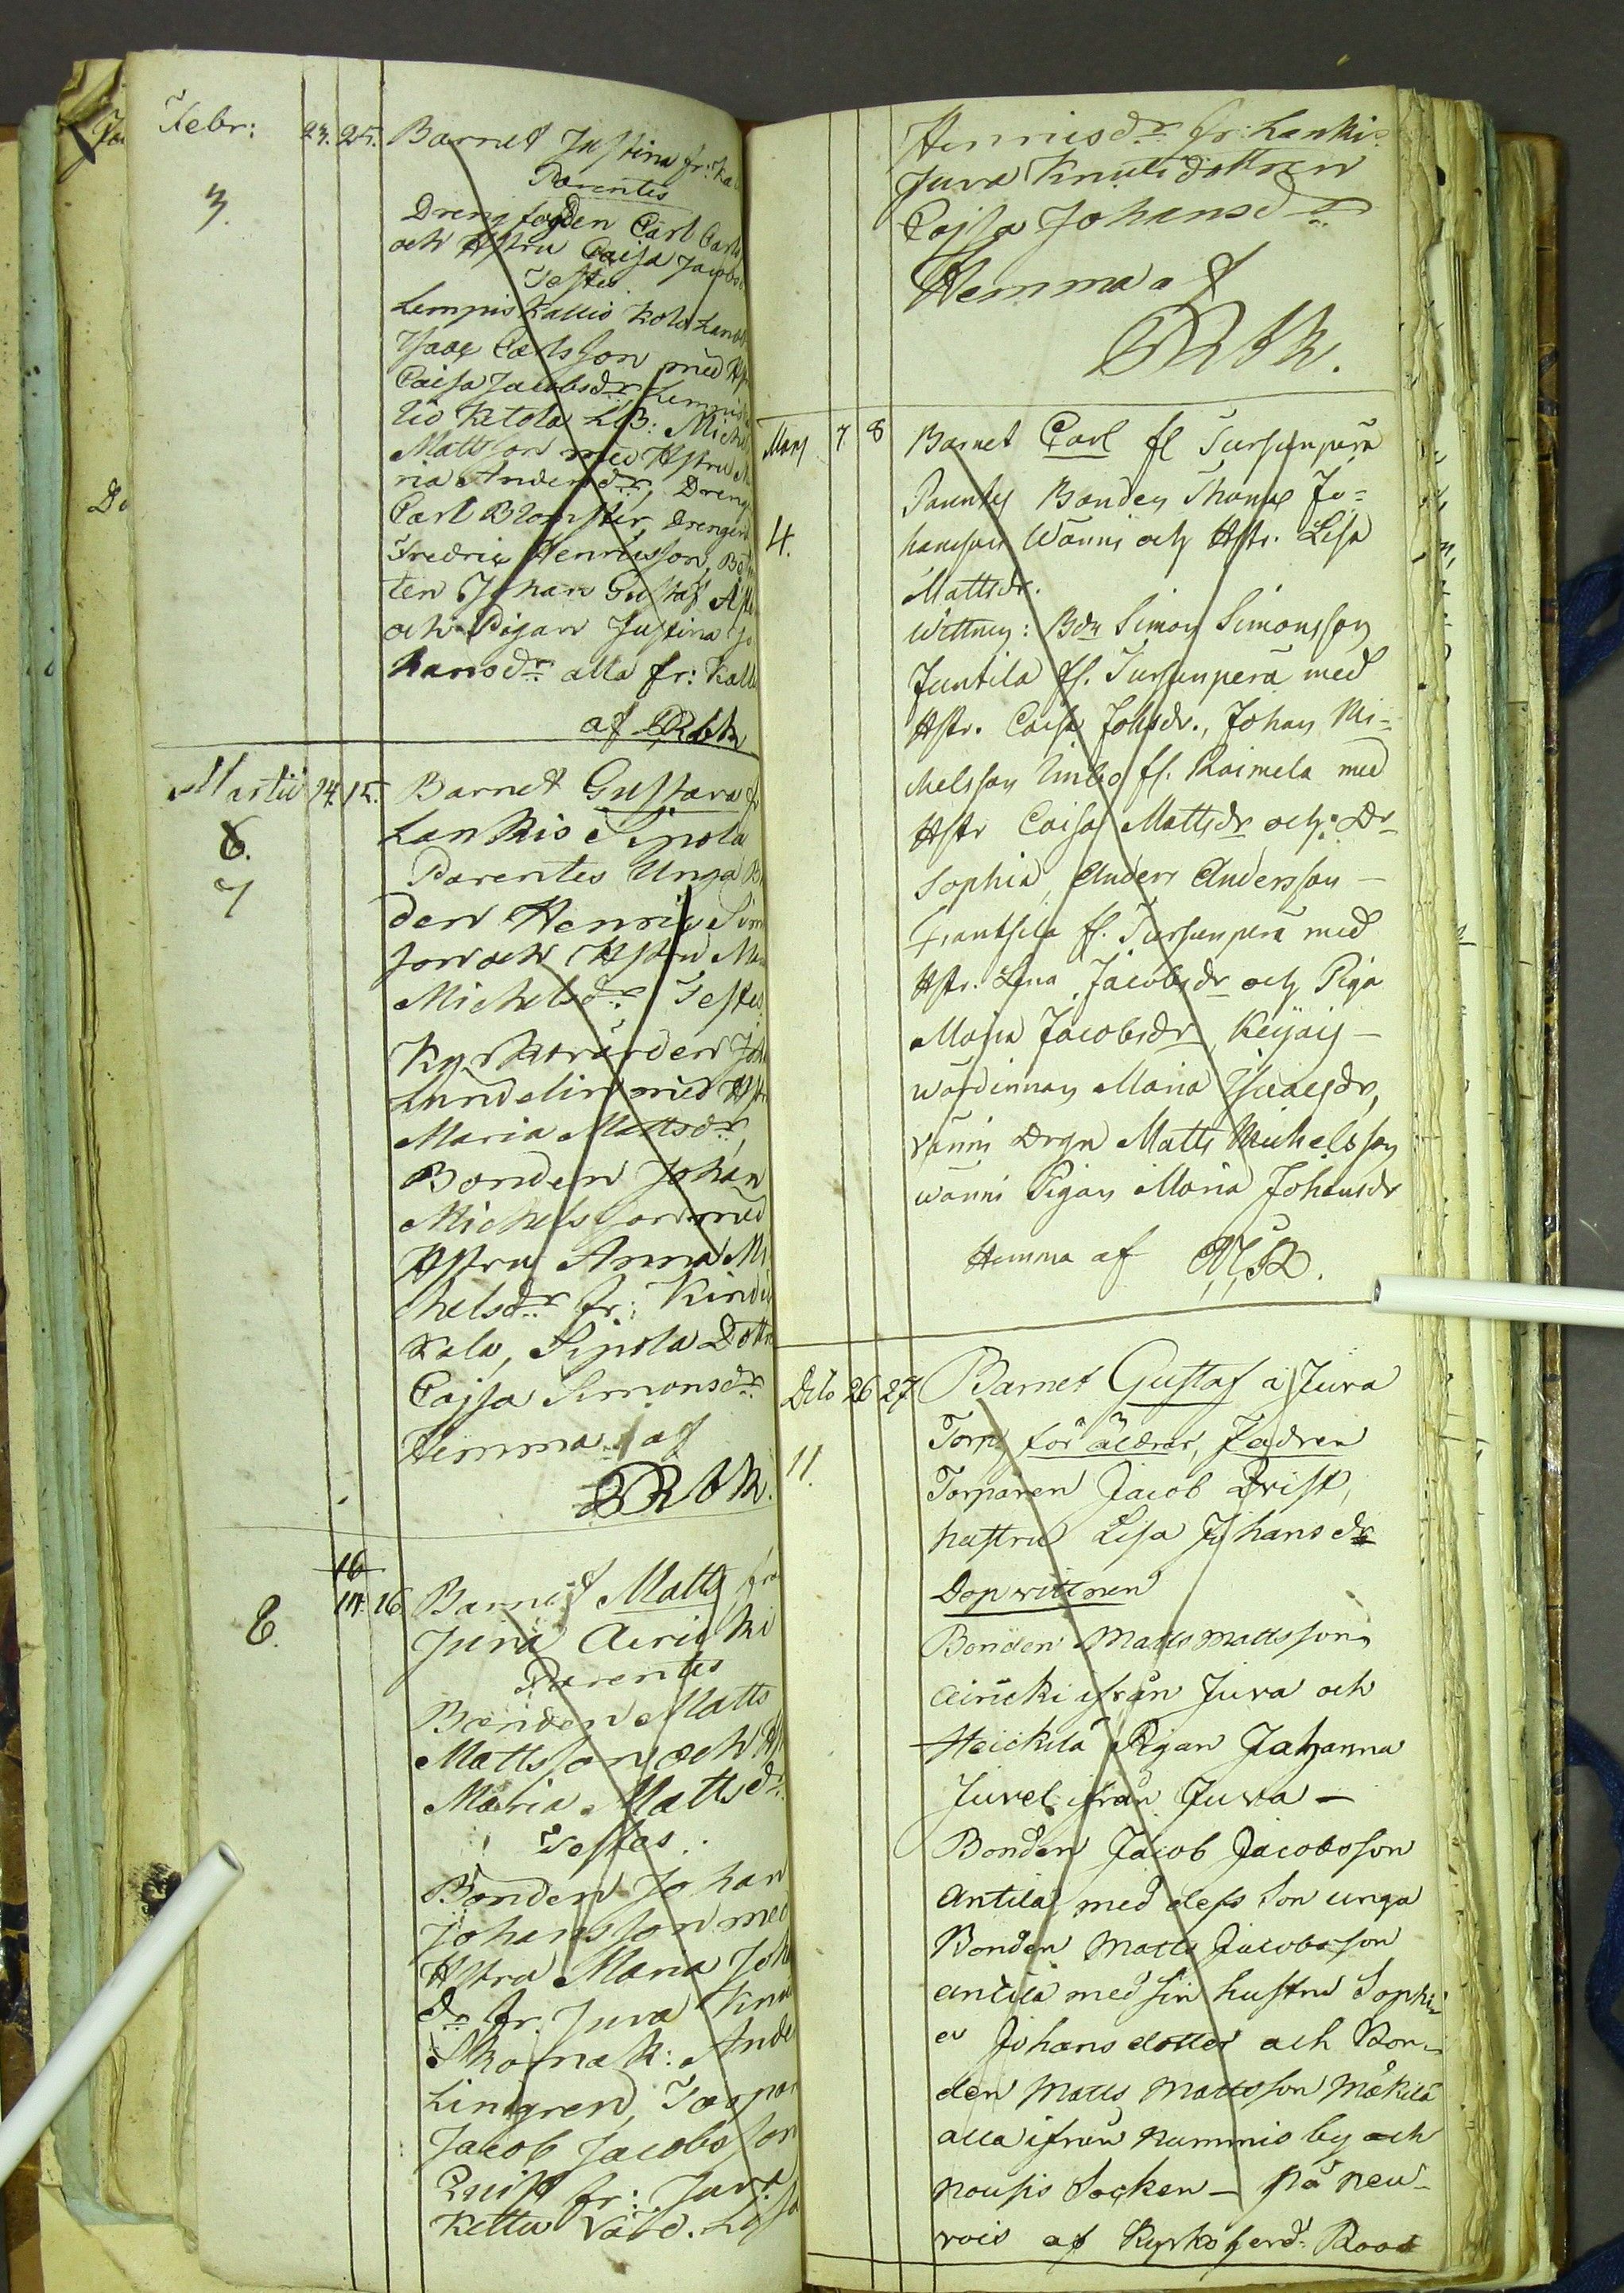 Febr: 23. 25. Barnet Justina fr:
3.
Parentes
Dreng fogden Carl
och Hstru Caisa Jacobs
Testes
Lempis Kallio
Isaac Carlsson med
Caisa Jacobsdr
Ketola Mich
Mattsson med Hstru
ria Andersdr, Dreng
Carl Blomster, drengen
Fredric Henricsson,
ten Johan Gustaf
och Pigan Justina Jo
hansdr alla fr: Kall
af
Martii 14. 15. Barnet Gustava fr
6.
7
Lankis Sipola
Parentes Unga
den Henric Sim
son och Hstru
Michelsdr Testes
Kyrkvärden Joh
Lundelin med Hstr
Maria Mattsdr,
Bonden Johan
Michelsson med
Hstru Anna Mi
chelsdr fr:
kala, Sipola Dottr
Cajsa Simonsdr
Hemma af
16
14. 16 Barnet Matts frå
8.
Juva Airicki
Parentes
Bonden Matts
Mattsson och
Maria Mattsdr.
Testes.
Bonden Johan
Johansson med
Hstru Maria Joh
dr fr. Juva Knu
Skomak: Ande
Lindgren, Torpar
Jacob Jacobsson
Qvist fr: Juva
Kettu
Henricsdr fr: Lankis
Juva Knuti dottren
Cajsa Johansdr
Hemma af
Marj 7 8 Barnet Carl fl Tursunperä
4.
Parentes Bonden Thomas Jo=
hansson Wänni och Hstr. Lisa
Mattsdr.
Wittnen: Bdn Simon Simonsson
Juntila fl. Tursunperä med
Hstr. Caisa Johsdr., Johan Mi=
chelsson fl. Raimela med
Hstr Caisa Mattsdr och Dr
Sophia, Anders Andersson —
Frantsila fl. Tursunperä med
Hstr. Lena Jacobsdr och Piga
Maria Jacobsdr —
wärdinnan Maria Isaacsdr,
Wänni Drgn Matts Michelsson
Wänni Pigan Maria Johansdr
Hemma af
Dito 26 27 Barnet Gustaf å Juva
11.
Torp, för äldrar, Fadren
Torparen Jacob Qvist,
hustru Lisa Johansdr
Dop vittnen
Bonden Matts Mattsson
Airicki ifrån Juva och
Heickilä Pigan Johanna
Juvel ifrån Juva —
Bonden Jacob Jacobsson
Antila med dess Son unga
Bonden Matts Jacobsson
Antila med sin hustru Sophi
a Johansdotter och Bon-
den Matts Mattsson Mäkilä
alla ifrån Nummis by och
Nousis Socken — på
rois af Kyrkoherd. Roos